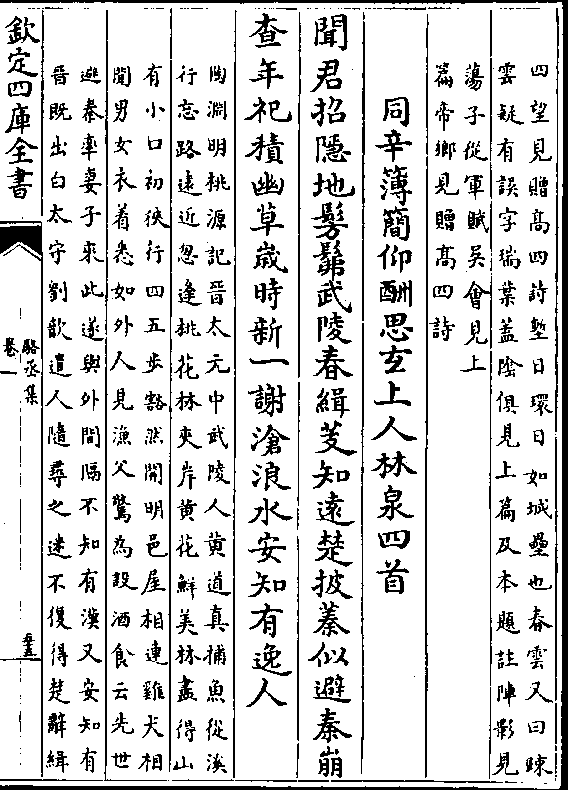 四望見贈高四詩塹日環日如城壘也春雲又曰踈
雲疑有誤字瑞葉蓋陰俱見上篇及本題註陣影見
蕩子從軍賦吳會見上
篇帝鄉見贈高四詩
同辛簿簡仰酬思玄上人林泉四首
聞君招隱地髣髴武陵春緝芰知還楚披蓁似避秦崩
查年祀積幽草歲時新一謝滄浪水安知有逸人
陶淵明桃源記晉太元中武陵人黄道真捕魚從溪
行忘路遠近忽逢桃花林夾岸黄花鮮美林盡得山
有小口初狹行四五步豁然開明邑屋相連雞犬相
聞男女衣着悉如外人見漁父驚為設酒食云先世
避秦率妻子來此遂與外間隔不知有漢又安知有
晉既出白太守劉歆遣人隨尋之迷不復得楚辭緝
欽定四庫全書
駱丞集
卷一